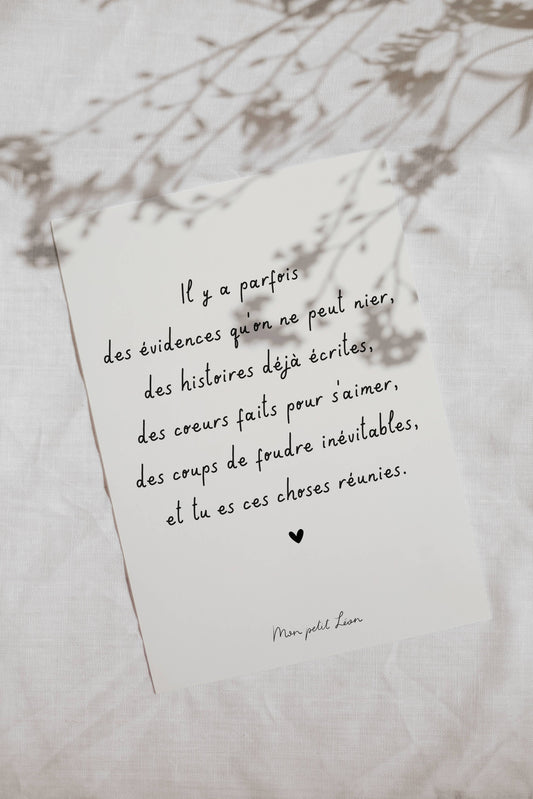 Il y a parfois
des évidences qu'on ne peut nier,
des histoires déjà écrites,
des coeurs faits pour s'aimer,
des coups de foudre inévitables,
et tu es ces choses réunies.
Mon petit Léon